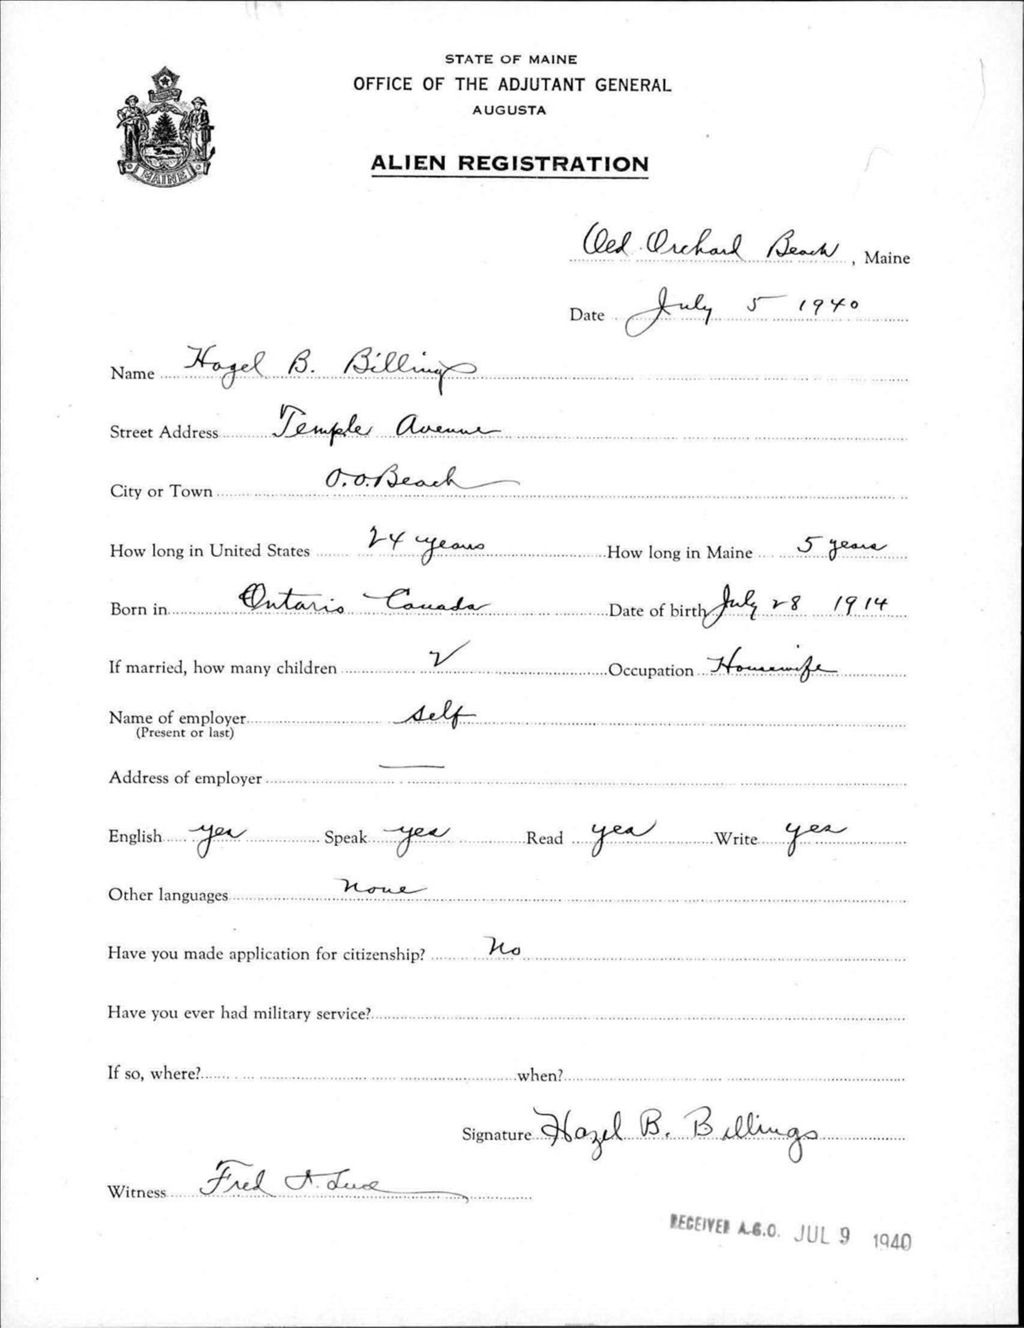 STATE OF MAINE
OFFICE OF THE ADJUTANT GENERAL
AUGUSTA
MAINE
ALIEN REGISTRATION
Old Orchard Beach, Maine
Date July 5 1940
Name Hazel B. Billings
Street Address Temple Avenue
City or Town O.O. Beach
How long in United States 24 years How long in Maine 5 years
Born in Ontario Canada Date of birth July 28 1914
If married, how many children 2 Occupation Housewife
Name of employer self
(Present or last)
Address of employer —
English yes Speak yes Read yes Write yes
Other languages none
Have you made application for citizenship? No
Have you ever had military service?
If so, where? when?
Signature Hazel B. Billings
Witness Fred
RECEIVED A.G.O. JUL 9 1940